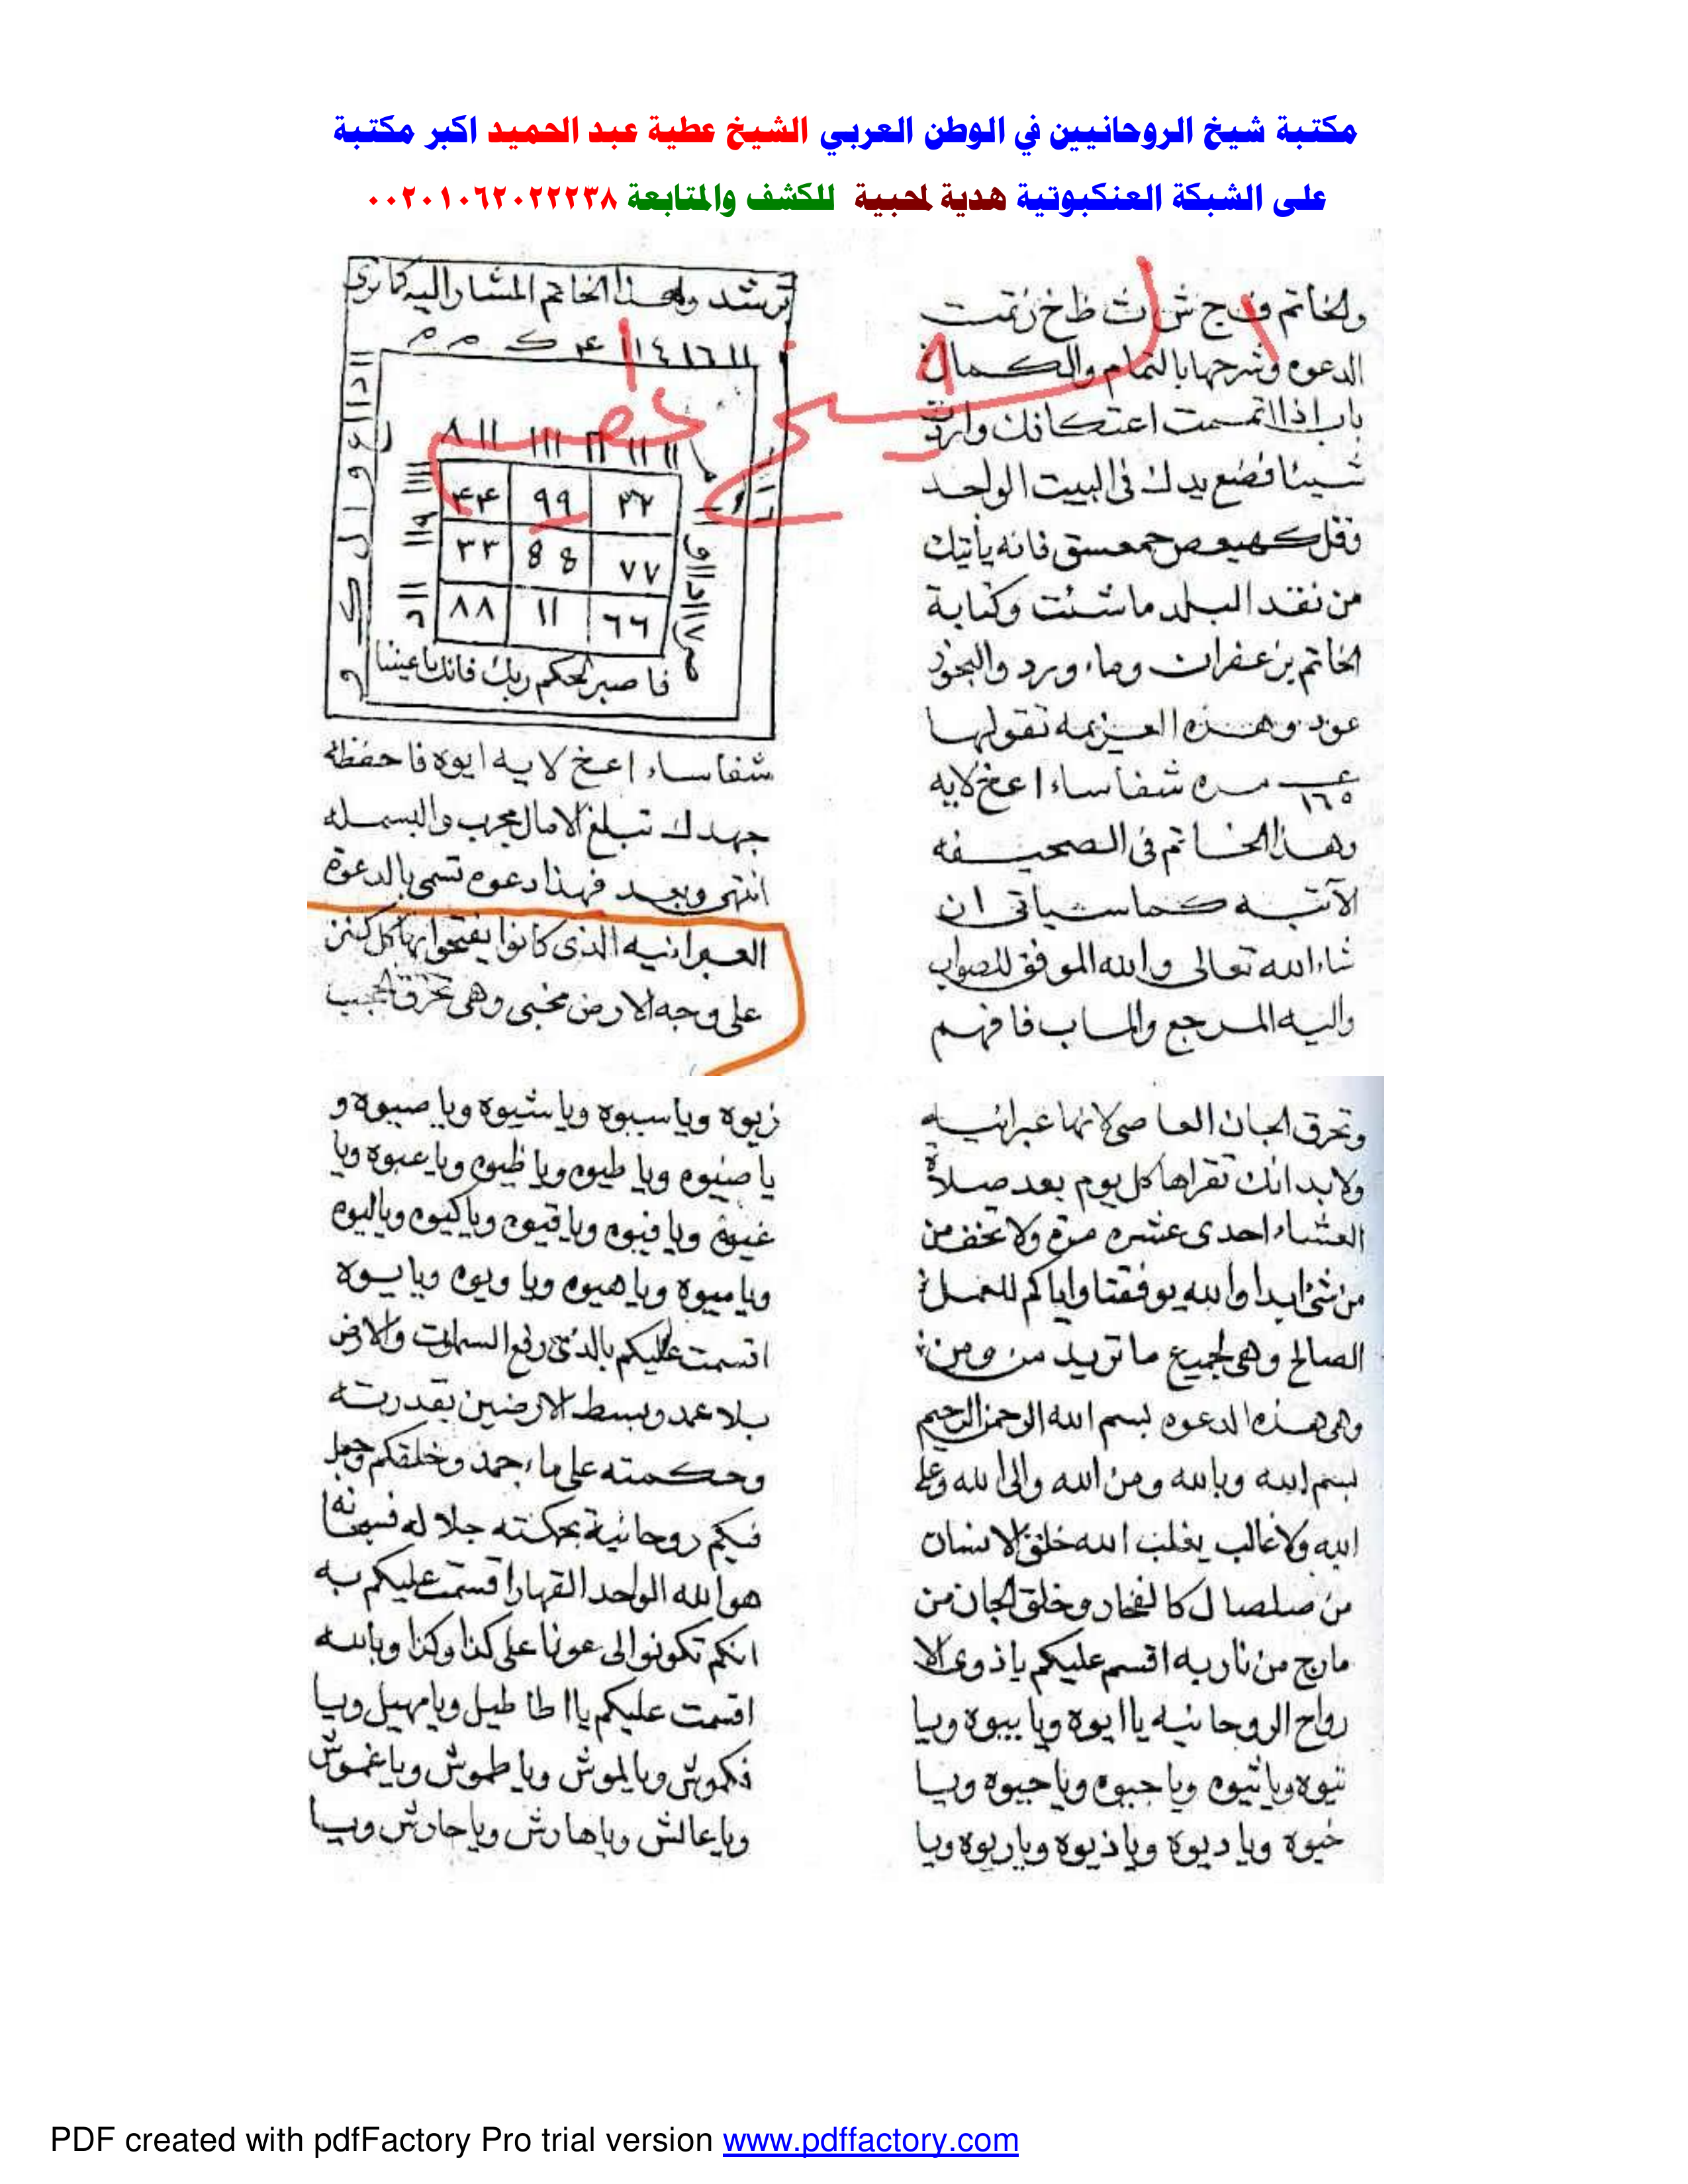 مكتبة شيخ الروحانيين في الوطن العربي الشيخ عطية عبد الحميد اكبر مكتبة
على الشبكة العنكبوتية هدية لمحبية للكشف والمتابعة ٠٠٢٠١٠٦٢٠٢٢٢٣٨
ولخاتم ف ج ش ث ظ خ ز تمت
الدعوه وشرحها بالتمام والكمال
باب اذا اتممت اعتكافك واردت
شيئا فضع يدك فى البيت الواحد
وقل كهيعص حمعسق فانه ياتيك
من نقد البلد ما شئت وكتابة
الخاتم بزعفران وماء ورد والبخور
عود وهذه العزيمه تقولها
١٦٥ مره شفاساء اعخ لايه
وهذا الخاتم فى الصحيفه
الآتيه كما سياتى ان
شاء الله تعالى والله الموفق للصواب
واليه المرجع والماب فافهم
ترشد وهذا الخاتم المشار اليه كما ترى
٩٩
٣٣ 88 ٧٧
٨٨ ١١ ٦٦
فاصبر لحكم ربك فانك باعيننا
شفاساء اعخ لايه ايوه فاحفظه
جهدك تبلغ الامال مجرب والبسمله
انتهى وبعد فهذا دعوه تسمى بالدعوة
العبرانيه الذى كانوا يفتحوا بها كل كنز
على وجه الارض مخبى وهى تحرق
وتحرق الجان العاصى لانها عبرانيه
ولابد انك تقراها كل يوم بعد صلاة
العشاء احدى عشره مرة ولا تخف من
من شئ ابدا والله يوفقنا واياكم للعمل
الصالح وهى لجميع ما تريد من ومن
وهى هذه الدعوه بسم الله الرحمن الرحيم
بسم الله وبالله ومن الله والى الله وعلى
الله ولا غالب يغلب الله خلق الانسان
من صلصال كالفخار وخلق الجان من
مارج من نار به اقسم عليكم يا ذوى الا
رواح الروحانيه يا ايوه ويا بيوه ويا
تيوه ويا ثيوه ويا جيوه ويا حيوه ويا
خيوه ويا ديوه ويا ذيوه ويا ريوه ويا
زيوه ويا سيوه ويا شيوه ويا صيوه و
يا ضيوه ويا طيوه ويا ظيوه ويا عيوه ويا
غيوه ويا فيوه ويا قيوه ويا كيوه ويا ليوه
ويا ميوه ويا هيوه ويا ويوه ويا يوه
اقسمت عليكم بالذى رفع السموات والارض
بلا عمد وبسط الارضين بقدرته
وحكمته على ماء جمد وخلقكم وجعل
فيكم روحانية بحكمته جلاله فسبحانه
هو الله الواحد القهار اقسمت عليكم به
انكم تكونوا لى عونا على كذا وكذا وبالله
اقسمت عليكم يا اطاطيل ويا مهيل ويا
فكموش ويا لموش ويا طموش ويا غموش
ويا عالش ويا هارش ويا حارش ويا
PDF created with pdfFactory Pro trial version www.pdffactory.com